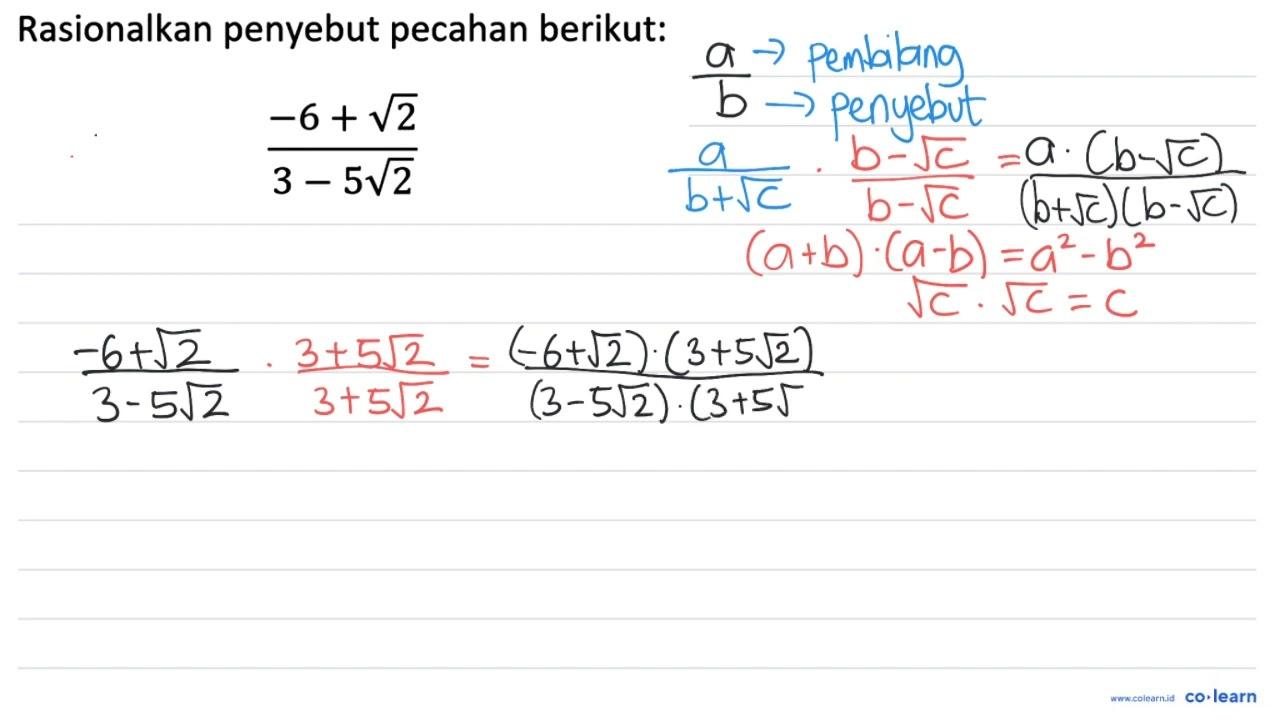 Rasionalkan penyebut pecahan berikut:
a/b → pembilang → penyebut
(-6 + √2)/(3 - 5√2)
a/(b+√c) · (b-√c)/(b-√c) = a·(b-√c)/(b+√c)(b-√c)
(a+b)·(a-b) = a² - b²
√c · √c = c
(-6+√2)/(3-5√2) · (3+5√2)/(3+5√2) = (-6+√2)·(3+5√2)/(3-5√2)·(3+5√
www.colearn.id co·learn